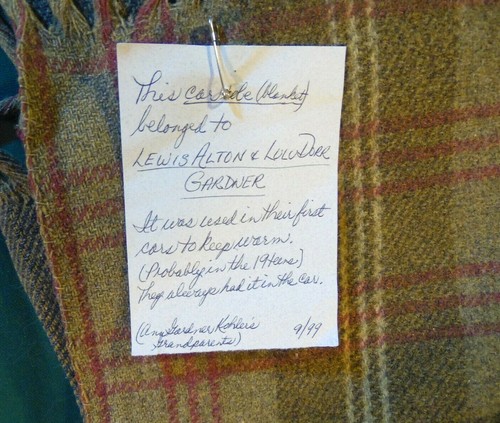 This carrite (blanket)
belonged to
LEWIS ALTON & LULU DORR
GARDNER
It was used in their first
cars to keep warm.
(Probably in the 19teens)
They always had it in the car.
(Ann Gardner Kohler's
Grandparents)
9/99